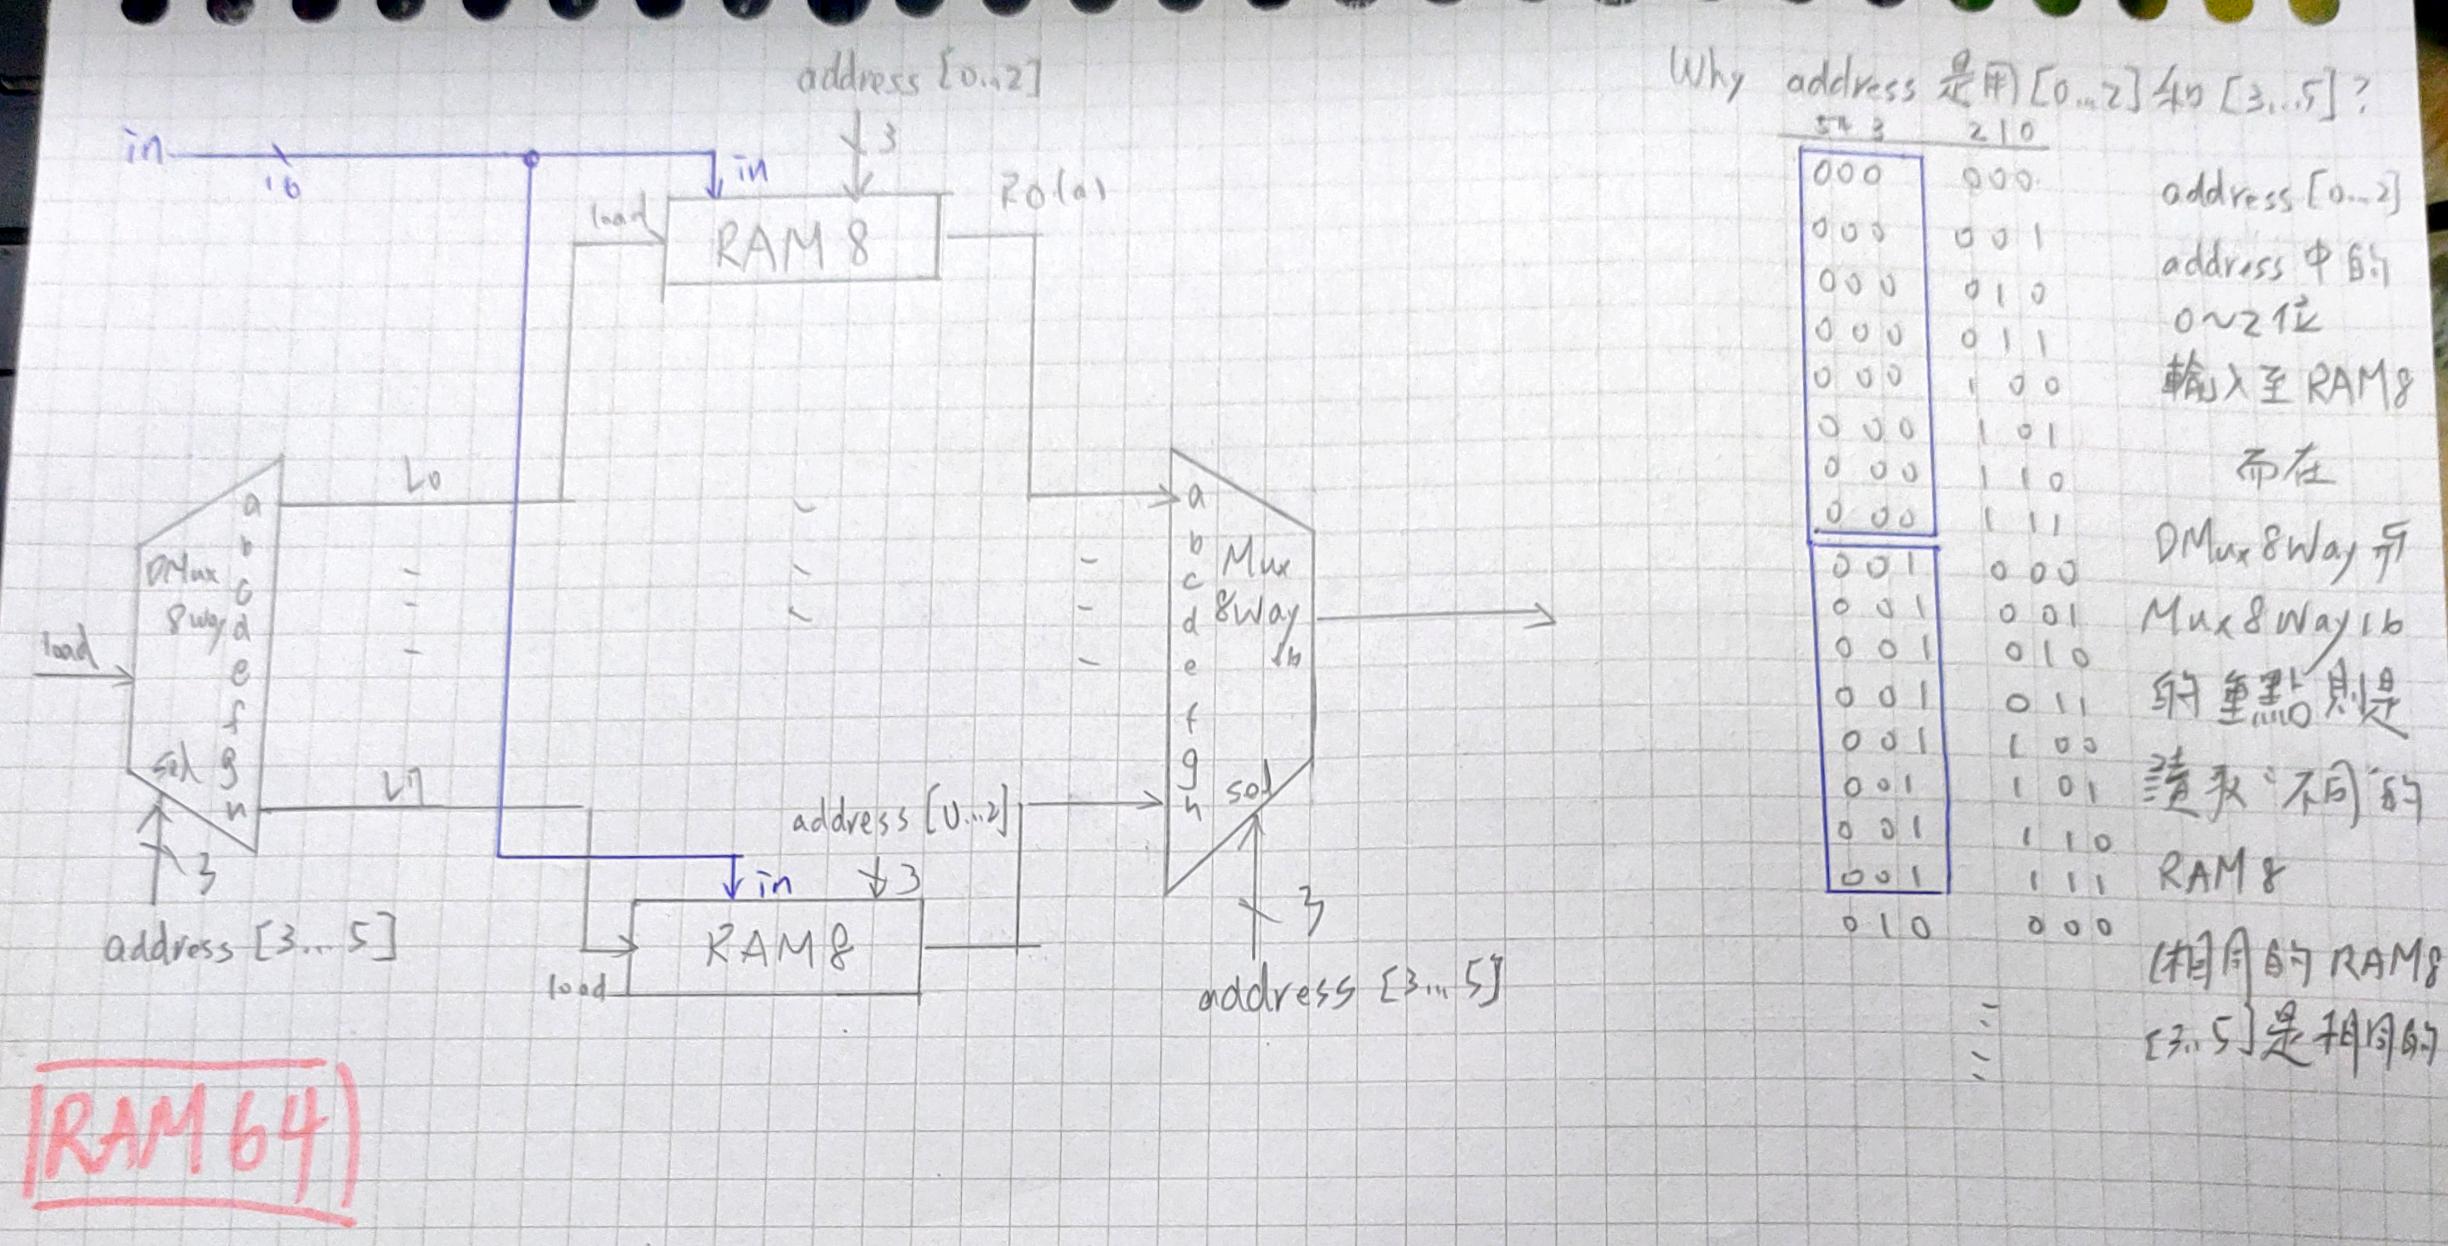 address [0...2]
in
16
in
3
load
RAM 8
R0(a)
L0
a
b
c
d
e
f
g
h
DMux
8way
load
sel
3
address [3...5]
L7
address [0...2]
in
3
RAM 8
load
a
b
c
d
e
f
g
h
Mux
8Way
16
sel
3
address [3...5]
RAM 64
Why address 是用[0...2]和[3...5]?
543 210
000 000
000 001
000 010
000 011
000 100
000 101
000 110
000 111
001 000
001 001
001 010
001 011
001 100
001 101
001 110
001 111
010 000
address [0...2]
address 中的
0~2位
輸入至 RAM8
而在
DMux8Way
Mux8Way16
的重點則是
讀取"不同"的
RAM 8
(相同的 RAM8
[3..5]是相同的